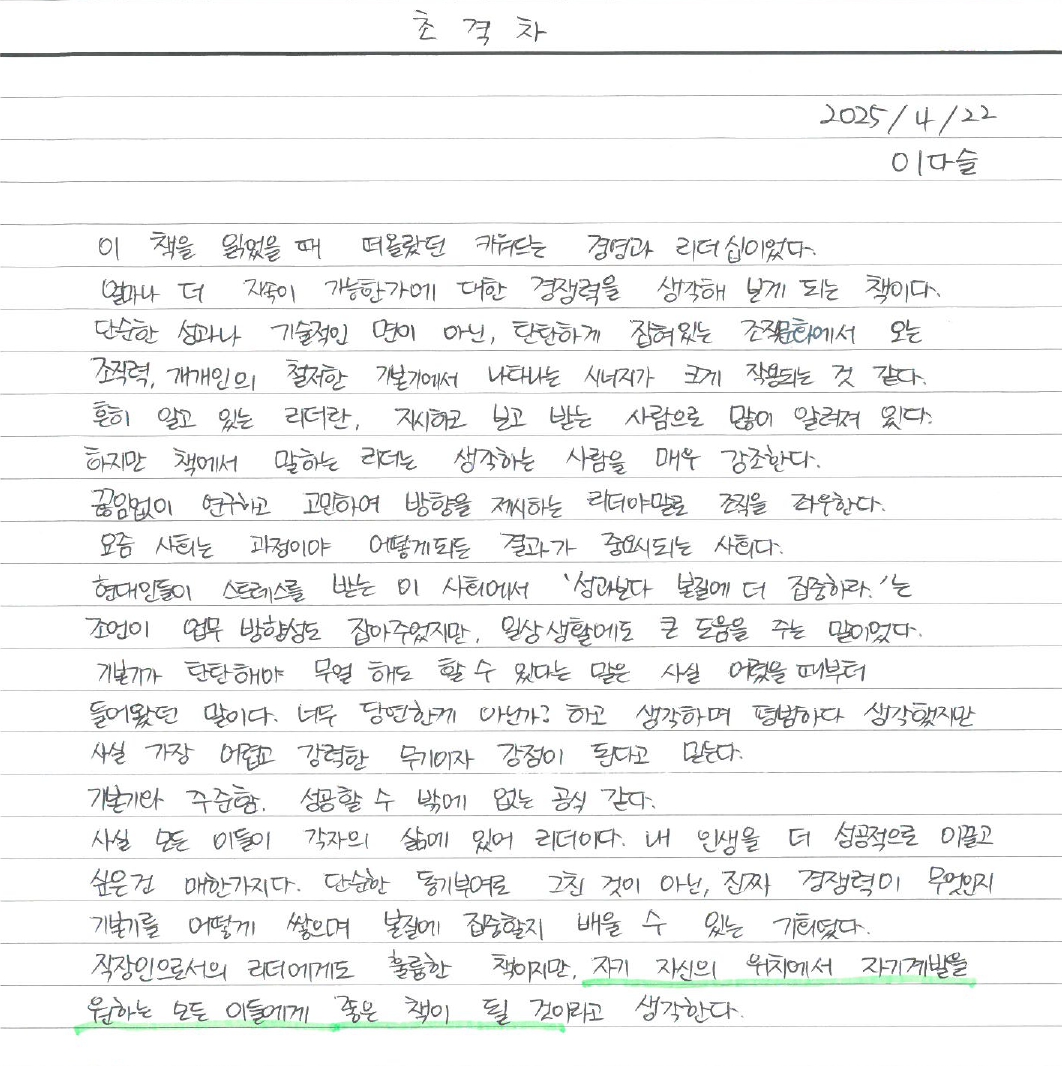 초격차
2025/4/22
이다슬
이 책을 읽었을 때 떠올랐던 키워드는 경영과 리더십이었다.
얼마나 더 지속이 가능한가에 대한 경쟁력을 생각해 보게 되는 책이다.
단순한 성과나 기술적인 면이 아닌, 탄탄하게 잡혀있는 조직문화에서 오는
조직력, 개개인의 철저한 기본기에서 나타나는 시너지가 크게 작용되는 것 같다.
흔히 알고 있는 리더란, 지시하고 보고 받는 사람으로 많이 알려져 있다.
하지만 책에서 말하는 리더는 생각하는 사람을 매우 강조한다.
끊임없이 연구하고 고민하여 방향을 제시하는 리더야말로 조직을 좌우한다.
요즘 사회는 과정이야 어떻게되든 결과가 중요시되는 사회다.
현대인들이 스트레스를 받는 이 사회에서 '성과보다 본질에 더 집중하라.'는
조언이 업무 방향성도 잡아주었지만, 일상생활에도 큰 도움을 주는 말이었다.
기본기가 탄탄해야 무얼 해도 할 수 있다는 말은 사실 어렸을때부터
들어왔던 말이다. 너무 당연한게 아닌가? 하고 생각하며 평범하다 생각했지만
사실 가장 어렵고 강력한 무기이자 강점이 된다고 믿는다.
기본기와 꾸준함. 성공할 수 밖에 없는 공식 같다.
사실 모든 이들이 각자의 삶에 있어 리더이다. 내 인생을 더 성공적으로 이끌고
싶은건 매한가지다. 단순한 동기부여로 그친 것이 아닌, 진짜 경쟁력이 무엇인지
기본기를 어떻게 쌓으며 본질에 집중할지 배울 수 있는 기회였다.
직장인으로서의 리더에게도 훌륭한 책이지만, 자기 자신의 위치에서 자기계발을
원하는 모든 이들에게 좋은 책이 될 것이라고 생각한다.